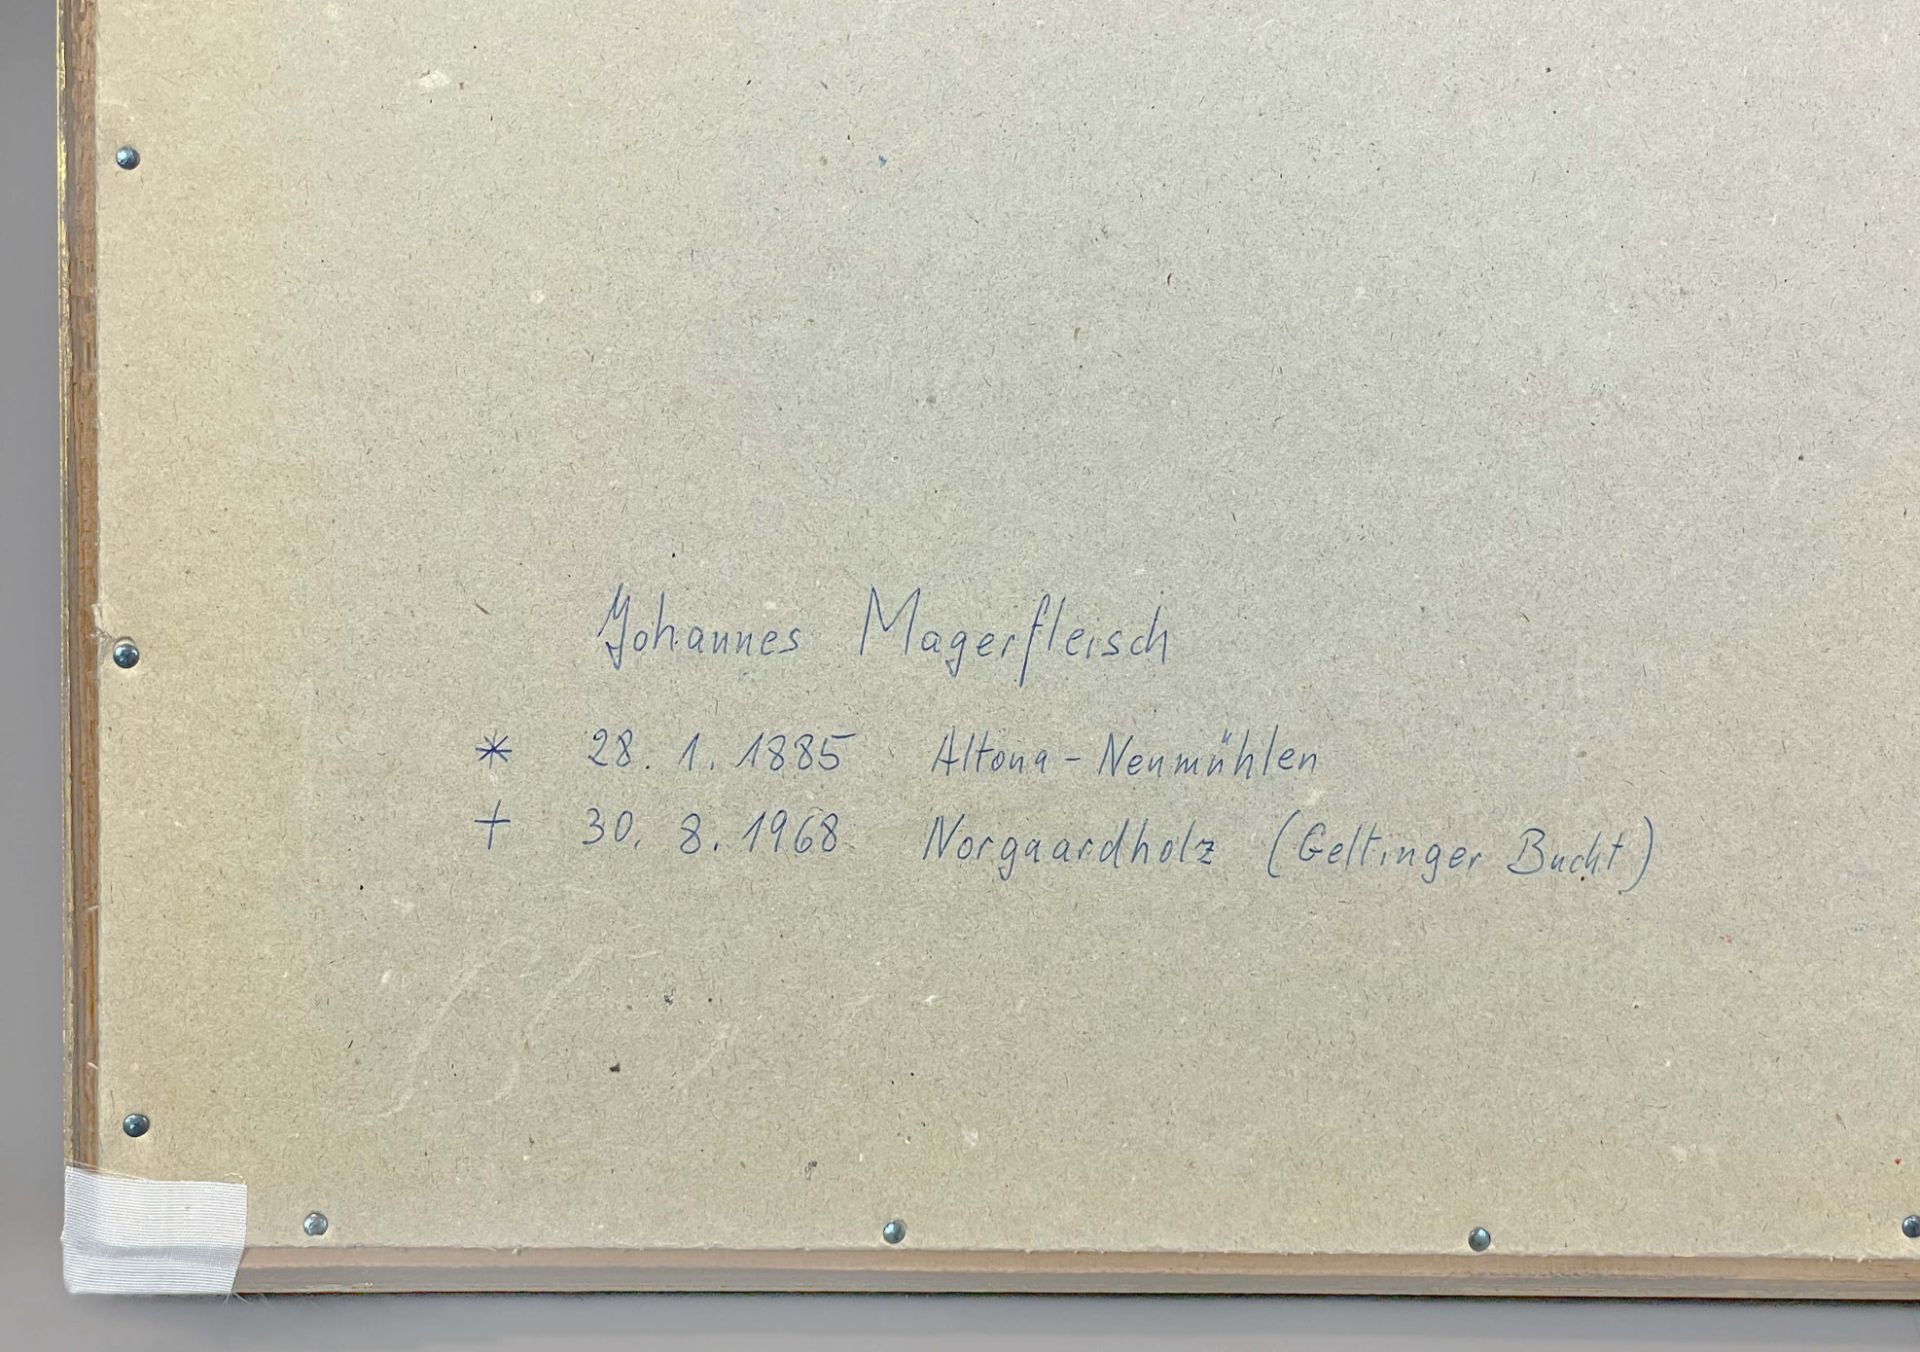 Johannes Magerfleisch
* 28. 1. 1885 Altona-Neumühlen
† 30. 8. 1968 Norgaardholz (Geltinger Bucht)